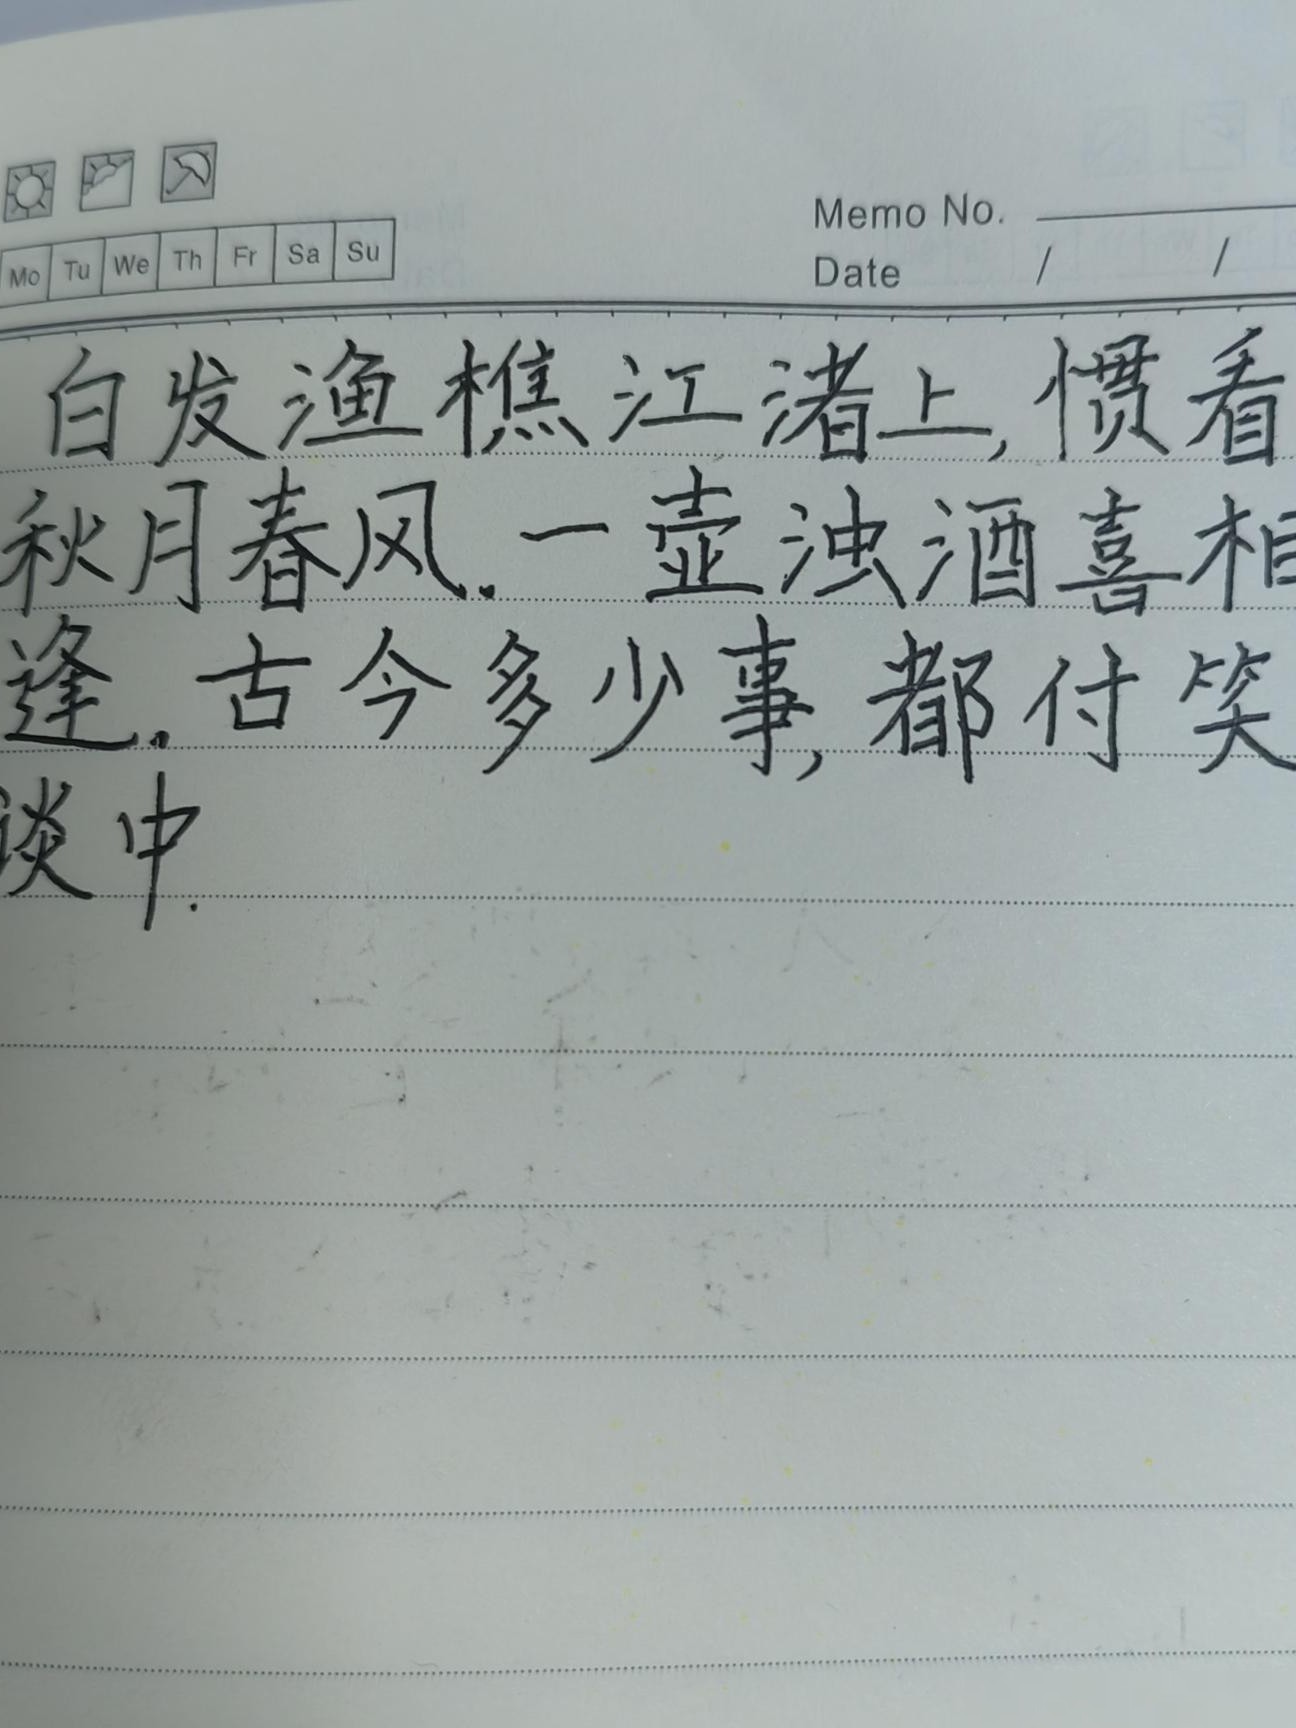 Memo No.
Mo Tu We Th Fr Sa Su
Date / /
白发渔樵江渚上,惯看
秋月春风.一壶浊酒喜相
逢.古今多少事,都付笑
谈中.